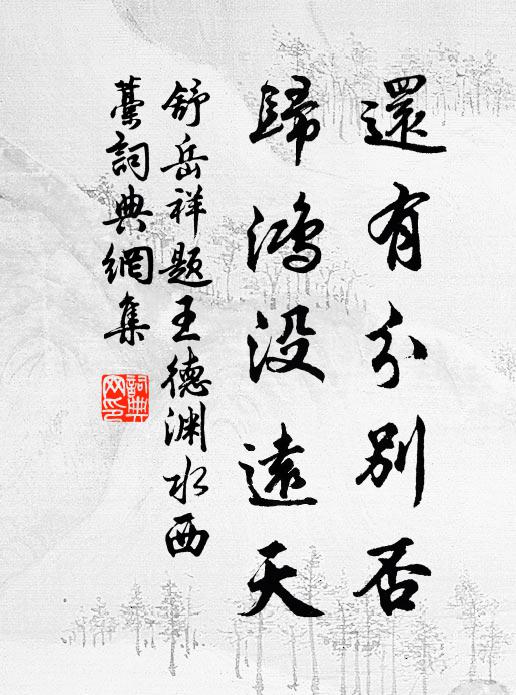 還有分別否
歸鴻没遠天
舒岳祥題王德渊水西
藳詞典網集
詞典
网印